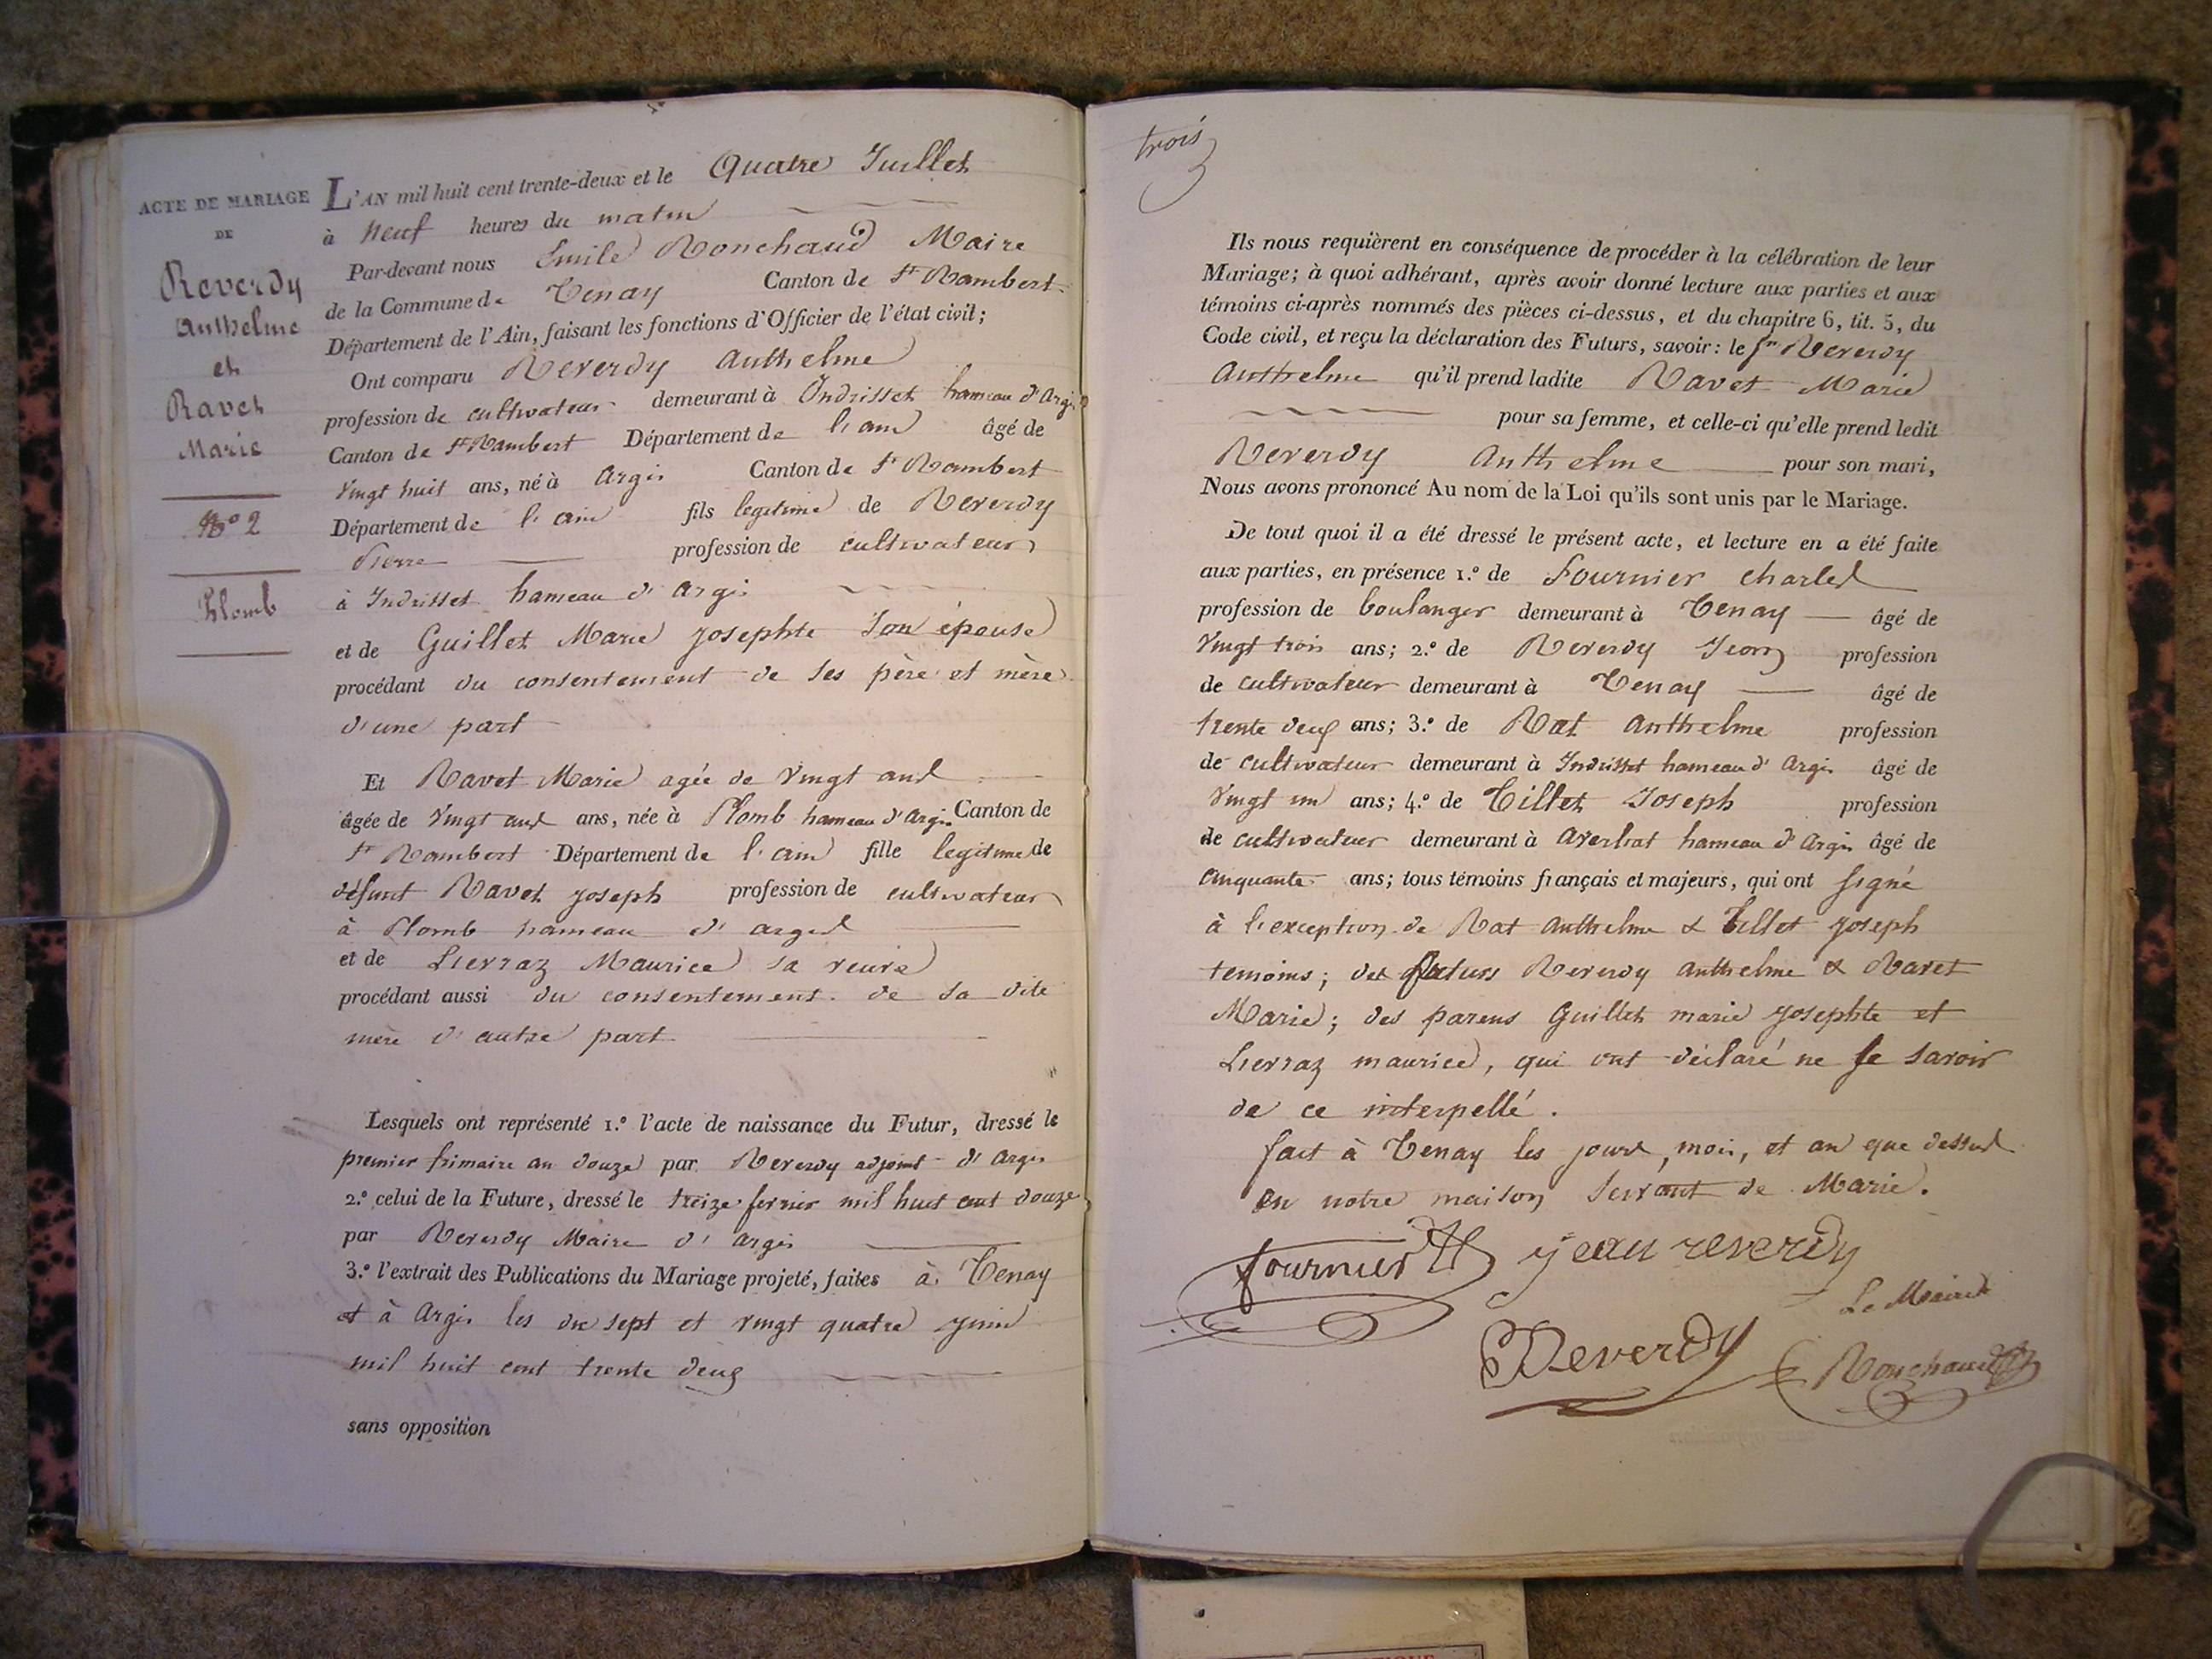 ACTE DE MARIAGE
DE
Reverdy
Anthelme
et
Ravet
Marie
N.º 2
Plomb
L'AN mil huit cent trente-deux et le Quatre Juillet
à Neuf heures du matin
Par-devant nous Emile Ronchaud Maire
de la Commune de Tenay Canton de St Rambert
Département de l'Ain, faisant les fonctions d'Officier de l'état civil;
Ont comparu Reverdy Anthelme
profession de cultivateur demeurant à Indrisset hameau d'Argis
Canton de St Rambert Département de l'ain âgé de
vingt huit ans, né à Argis Canton de St Rambert
Département de l'ain fils legitime de Reverdy
Pierre profession de cultivateur
à Indrisset hameau d'argis
et de Guillet Marie Josephte son épouse
procédant du consentement de ses père et mère
d'une part
Et Ravet Marie agée de vingt ans
âgée de vingt ans ans, née à Plomb hameau d'Argis Canton de
St Rambert Département de l'ain fille legitime de
défunt Ravet joseph profession de cultivateur
à Plomb hameau d'argis
et de Lierraz Maurice sa veuve
procédant aussi du consentement de sa dite
mère d'autre part
Lesquels ont représenté 1.º l'acte de naissance du Futur, dressé le
premier frimaire an douze par Reverdy adjoint d'Argis
2.º celui de la Future, dressé le treize fevrier mil huit cent douze
par Reverdy Maire d'argis
3.º l'extrait des Publications du Mariage projeté, faites à Tenay
et à Argis les dix sept et vingt quatre juin
mil huit cent trente deux
sans opposition
trois
3
Ils nous requièrent en conséquence de procéder à la célébration de leur
Mariage; à quoi adhérant, après avoir donné lecture aux parties et aux
témoins ci-après nommés des pièces ci-dessus, et du chapitre 6, tit. 5, du
Code civil, et reçu la déclaration des Futurs, savoir: le Sr Reverdy
Anthelme qu'il prend ladite Ravet Marie
pour sa femme, et celle-ci qu'elle prend ledit
Reverdy Anthelme pour son mari,
Nous avons prononcé Au nom de la Loi qu'ils sont unis par le Mariage.
De tout quoi il a été dressé le présent acte, et lecture en a été faite
aux parties, en présence 1.º de Fournier Charles
profession de boulanger demeurant à Tenay âgé de
vingt trois ans; 2.º de Reverdy Jean profession
de cultivateur demeurant à Tenay âgé de
trente deux ans; 3.º de Rat Anthelme profession
de cultivateur demeurant à Indrisset hameau d'Argis âgé de
vingt un ans; 4.º de Tillet Joseph profession
de cultivateur demeurant à hameau d'Argis âgé de
cinquante ans; tous témoins français et majeurs, qui ont signé
à l'exception de Rat Anthelme & Tillet Joseph
temoins; des futurs Reverdy Anthelme & Ravet
Marie; des parens Guillet marie josephte et
Lierraz maurice, qui ont déclaré ne le savoir
de ce interpellé.
fait à Tenay les jours, mois, et an que dessus
en notre maison servant de Marie.
fournier
jean reverdy
Le Maire
Reverdy
Ronchaud